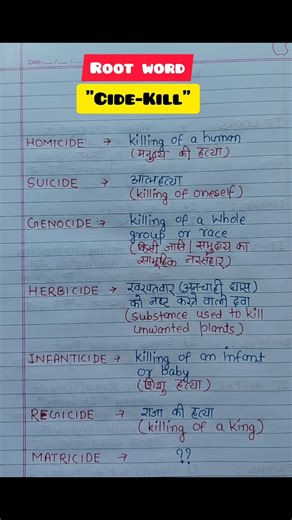 Date ___/___/___
ROOT WORD
"CIDE-KILL"
HOMICIDE → killing of a human
(मनुष्य की हत्या)
SUICIDE → आत्महत्या
(killing of oneself)
GENOCIDE → killing of a whole
group or race
(किसी जाति / समुदाय का
सामूहिक नरसंहार)
HERBICIDE → खरपतवार (अनचाही घास)
को नष्ट करने वाली दवा
(substance used to kill
unwanted plants)
INFANTICIDE → killing of an infant
or baby
(शिशु हत्या)
REGICIDE → राजा की हत्या
(killing of a king)
MATRICIDE → ??